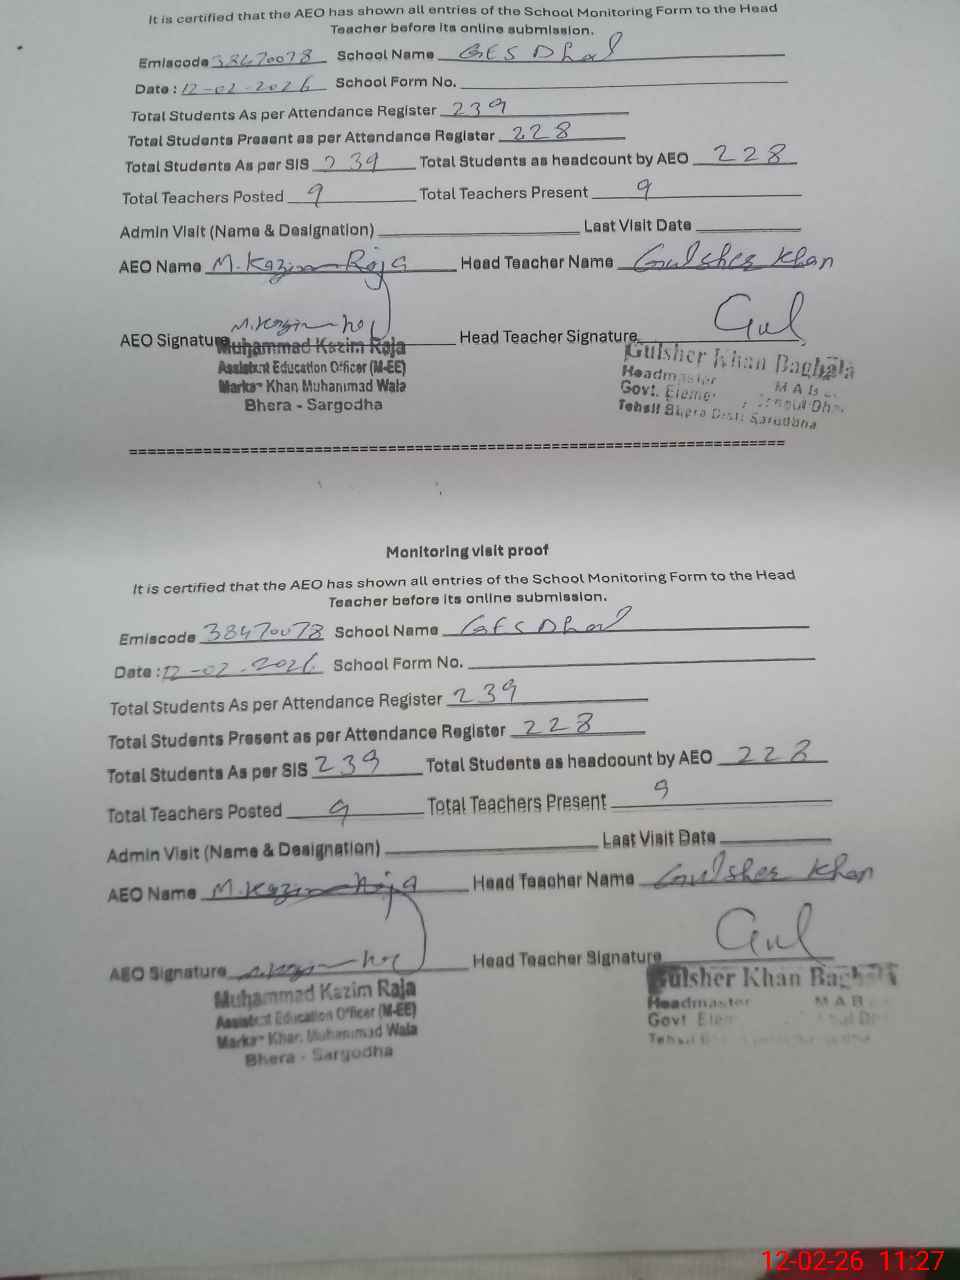 It is certified that the AEO has shown all entries of the School Monitoring Form to the Head
Teacher before its online submission.
Emiscode 38470078 School Name GES Dhal
Date : 12-02-2026 School Form No.
Total Students As per Attendance Register 239
Total Students Present as per Attendance Register 228
Total Students As per SIS 239 Total Students as headcount by AEO 228
Total Teachers Posted 9 Total Teachers Present 9
Admin Visit (Name & Designation) Last Visit Date
AEO Name M. Kazim Raja Head Teacher Name Gulsher Khan
AEO Signature M. Kazim Head Teacher Signature Gul
Muhammad Kazim Raja
Assistant Education Officer (M-EE)
Markaz Khan Muhammad Wala
Bhera - Sargodha
Gulsher Khan Baghala
Headmaster
Govt. Elemen
Tehsil Bhera Distt Sargodha
=====================================================================
Monitoring visit proof
It is certified that the AEO has shown all entries of the School Monitoring Form to the Head
Teacher before its online submission.
Emiscode 38470078 School Name GES Dhal
Date : 12-02-2026 School Form No.
Total Students As per Attendance Register 239
Total Students Present as per Attendance Register 228
Total Students As per SIS 239 Total Students as headcount by AEO 228
Total Teachers Posted 9 Total Teachers Present 9
Admin Visit (Name & Designation) Last Visit Date
AEO Name M. Kazim Raja Head Teacher Name Gulsher Khan
AEO Signature Head Teacher Signature Gul
Muhammad Kazim Raja
Assistant Education Officer (M-EE)
Markaz Khan Muhammad Wala
Bhera - Sargodha
Gulsher Khan Baghala
Headmaster
Govt Elem
12-02-26 11:27